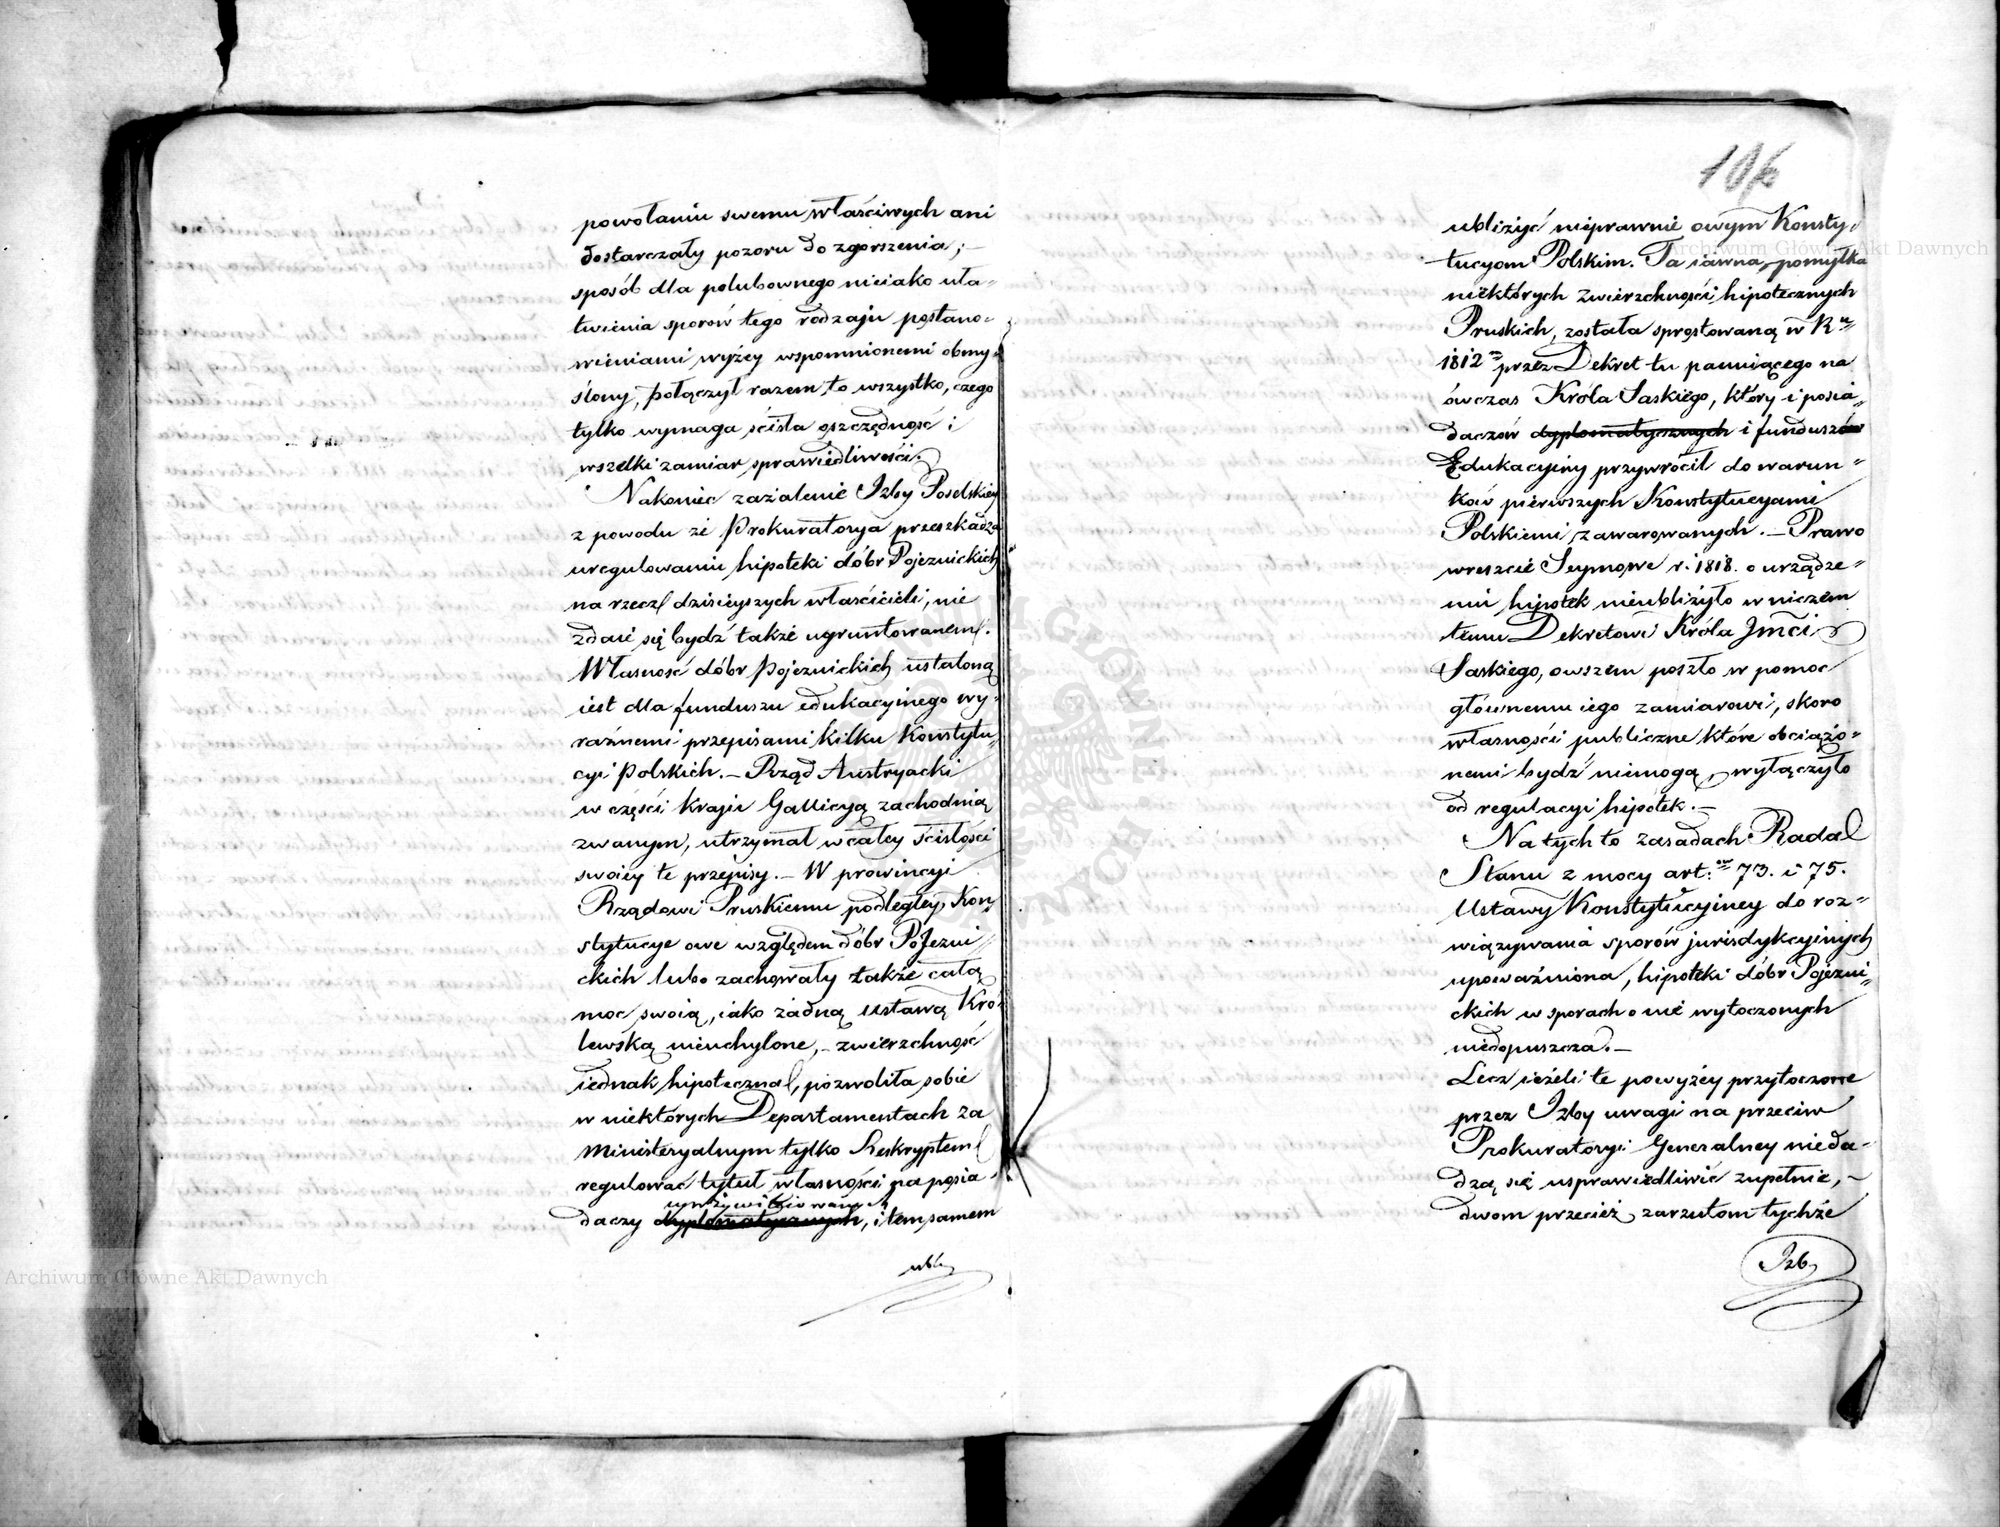 powołaniu swemu właściwych ani
dostarczały pozoru do zgorszenia; –
sposób dla polubownego nieiako uła=
twienia sporów tego rodzaju postano=
wieniami wyżey wspomnionemi obmy=
ślony, połączył razem to wszystko, czego
tylko wymaga ścisła oszczędność i
wszelki zamiar sprawiedliwości.
Nakoniec zażalenie Izby Poselskiey
z powodu że Prokuratorya przeszkadza
uregulowaniu hipoteki dóbr Pojezuickich
na rzecz dzisieyszych właścicieli, nie
zdaie się bydź także ugruntowanem.
Własność dóbr pojezuickich ustaloną
iest dla funduszu edukacyinego wy=
raźnemi przepisami kilku Konstytu=
cyi Polskich. – Rząd Austryacki
w części kraiu Gallicyą zachodnią
zwanym, utrzymał w całey ścisłości
swoiey te przepisy. – W prowincyi
Rządowi Pruskiemu podległey, Kon=
stytucye owe względem dóbr PoJezui=
ckich lubo zachowały także całą
moc swoią, iako żadną ustawą Kró=
lewską nieuchylone, – zwierzchność
iednak hipoteczna, pozwoliła sobie
w niektórych Departamentach za
Ministeryalnym tylko Reskryptem
regulować tytuł własności na posia=
uprzywileiowanych
daczy dyplomatycznych, i tem samem
ubli
106
ubliżyć nieprawnie owym Konsty=
tucyom Polskim. Ta iawna pomyłka
niektórych zwierzchności hipotecznych
Pruskich, została sprostowaną w Ru
1812 m przez Dekret tu panuiącego na
ówczas Króla Saskiego, który i posia=
daczów dyplomatycznych i funduszów
Edukacyiny przywrócił do warun=
ków pierwszych Konstytucyami
Polskiemi zawarowanych. – Prawo
wreszcie Seymowe r. 1818. o urządze=
niu hipotek nieubliżyło w niczem
temu Dekretowi Króla Jmci
Saskiego, owszem poszło w pomoc
głównemu iego zamiarowi, skoro
własności publiczne które obciążo=
nemi bydź niemogą, wyłączyło
od regulacyi hipotek. –
Na tych to zasadach Rada
Stanu z mocy art: 73. i 75.
Ustawy Konstytucyiney do roz=
wiązywania sporów jurisdykcyinych
upoważniona, hipoteki dóbr Pojezui=
ckich w sporach o nie wytoczonych
niedopuszcza. –
Lecz ieżeli te powyżey przytoczone
przez Izby uwagi na przeciw
Prokuratoryi Generalney nieda=
dzą się usprawiedliwić zupełnie, –
dwom przecież zarzutom tychże
Izb
Archiwum Główne Akt Dawnych
Archiwum Główne Akt Dawnych